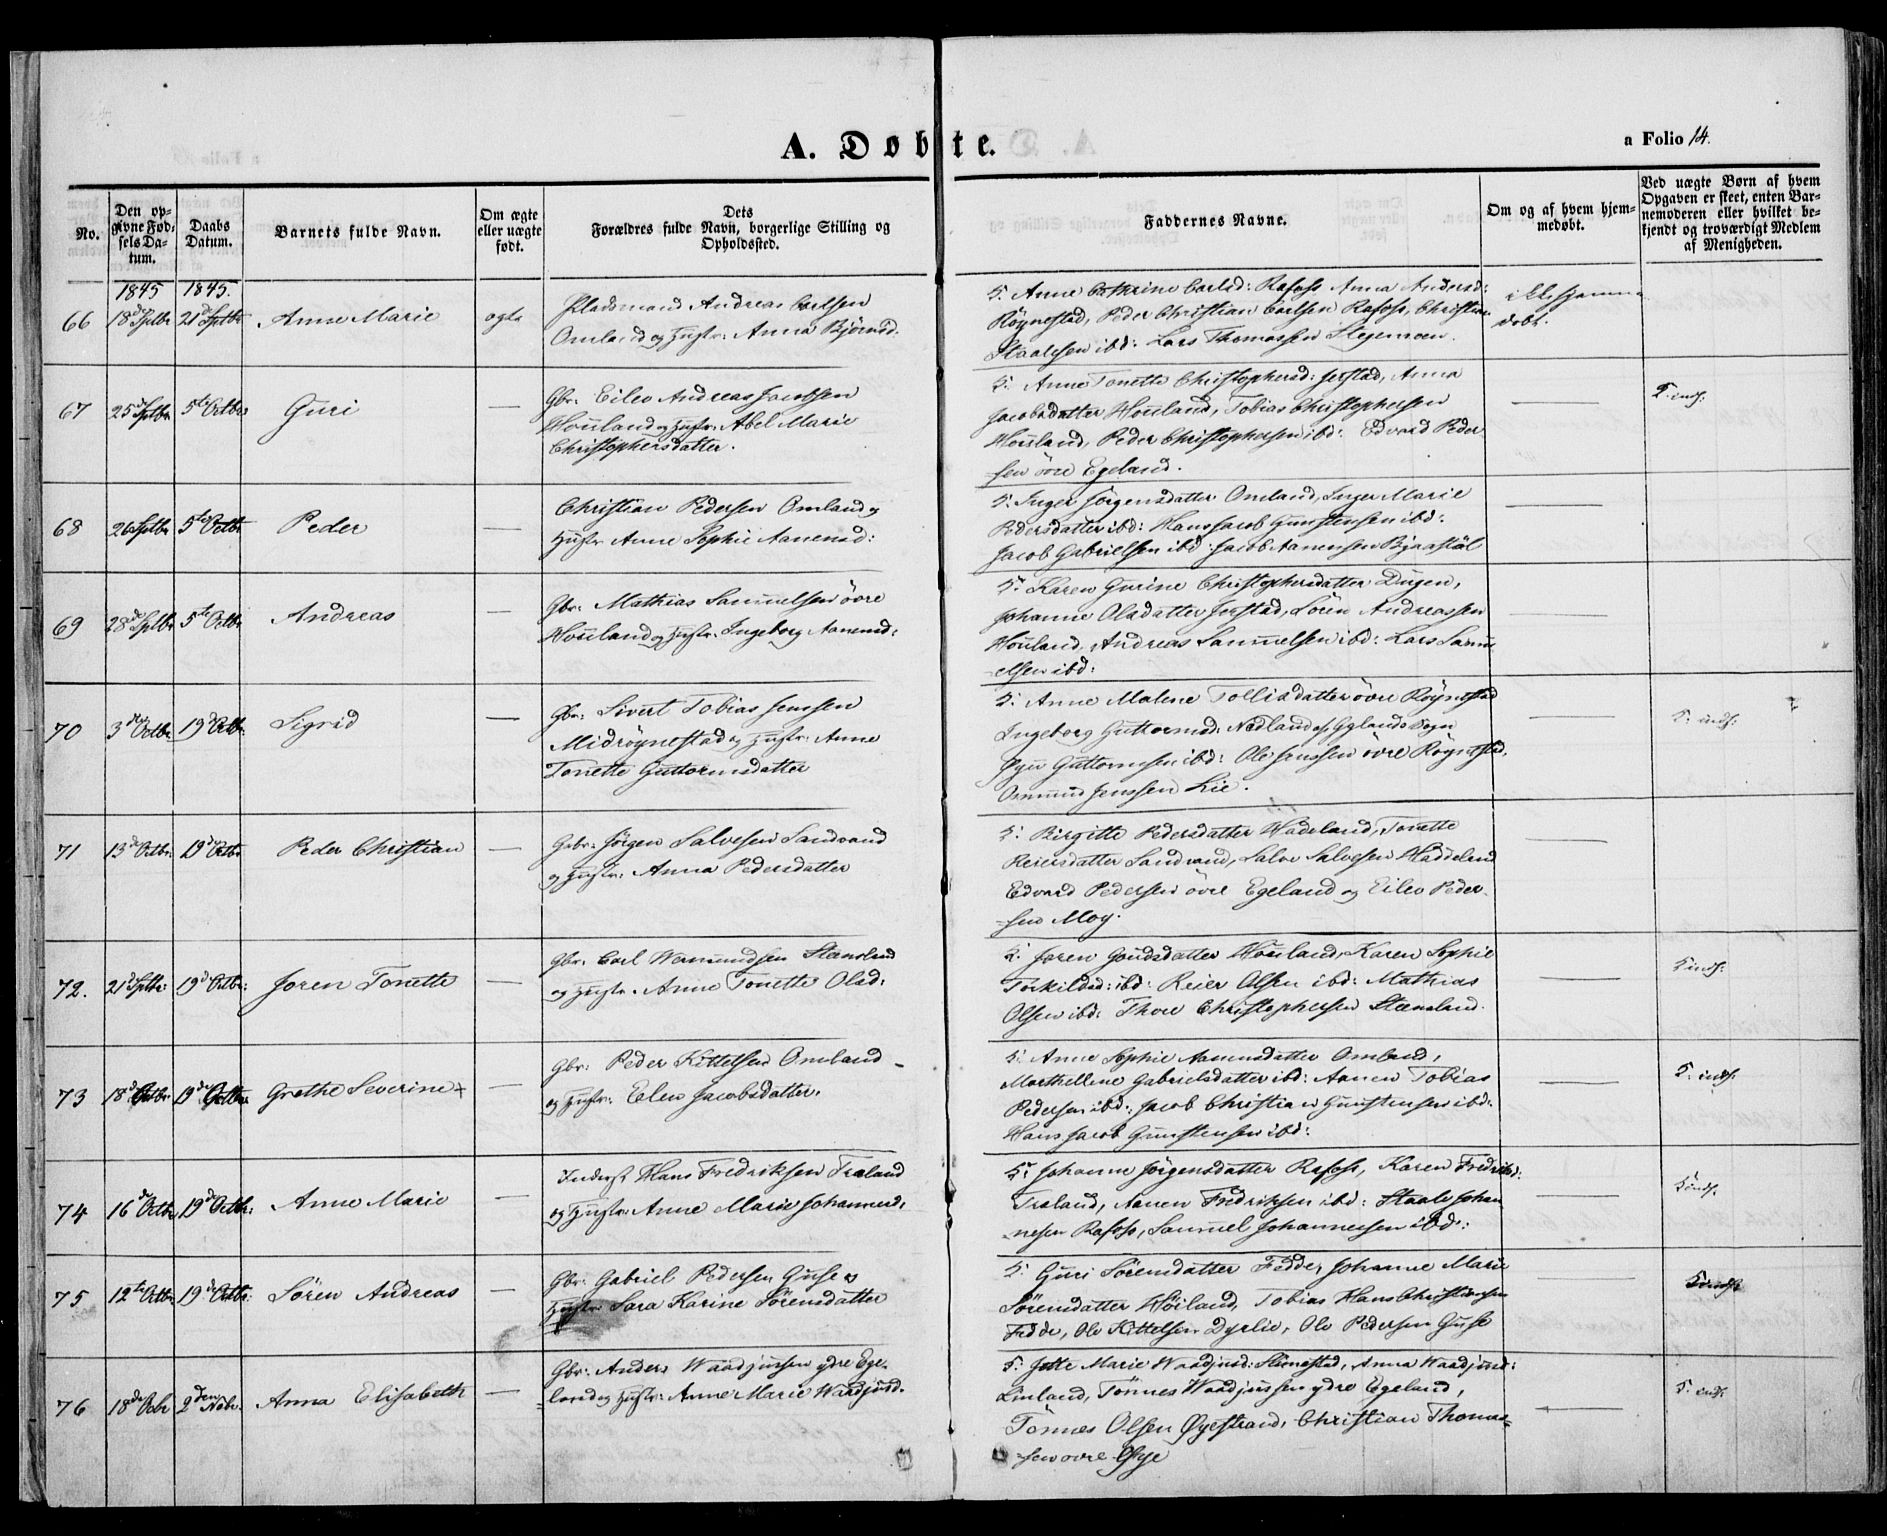 A. Døbte.
a Folio 14.
No.
Den opgivne Fødsels Datum.
Daabs Datum.
Barnets fulde Navn.
Om ægte eller uægte født.
Dets Forældres fulde Navn, borgerlige Stilling og Opholdssted.
Faddernes Navne.
Om og af hvem hjemmedøbt.
Ved uægte Børn af hvem Opgaven er skeet, enten Barnemoderen eller hvilket bekjendt og troværdigt Medlem af Menigheden.
1845 1845.
66 18d Sptbr 21d Sptbr Anne Marie ægte
Pladsmand Andreas Carlsen
Omland og Hustr: Anna Bjørnsd.
F. Anne Cathrine Carlsd: Rafoss Anna Andersd:
Röynestad, Peder Christian Carlsen Rafoss, Christian
Staalesen ibd: Lars Thomassen Stegemoen.
ikke hjemmedöbt.
67 25d Sptbr 5te Octbr Guri —
Gbr: Eilev Andreas Jacobsen
Houland og Hustr: Abel Marie
Christophersdatter.
F. Anne Tonette Christophersd: Jerstad, Anna
Jacobsdatter Houland, Tobias Christophersen
Houland, Peder Christophersen ibd: Edvard Peder-
sen övre Egeland.
—
F. inds.
68 26 Sptbr 5te Octbr Peder —
Christian Pedersen Omland og
Hustr Anne Sophie Aanensd:
F. Inger Jörgensdatter Omland, Inger Marie
Pedersdatter ibd: Hans Jacob Gunstensen ibd:
Jacob Gabrielsen ibd: Jacob Aanensen Bjaastöl
—
69 28d Sptbr 5te Octbr Andreas —
Gbr: Mathias Samuelsen övre
Houland og Hustr: Ingeborg Aanensd:
F. Karen Gurine Christophersdatter Dugen,
Johanne Olsdatter Jerstad, Sören Andreassen
Houland, Andreas Samuelsen ibd: Lars Samu-
elsen ibd:
—
70 3den Octbr 19d Octbr Sigrid —
Gbr: Sivert Tobias Jenssen
Midröynestad og Hustr: Anne
Tonette Guttormsdatter
F: Anne Malene Tollisdatter övre Röynestad
Ingeborg Guttormsd: Nedland af Gylands Sogn
Guttormsen ibd: Ole Jenssen övre Röynestad,
Osmund Jenssen Lie.
—
F: inds:
71 13d Octbr: 19d Octbr Peder Christian —
Gbr: Jörgen Salvesen Sandvand
og Hustr: Anna Pedersdatter
F: Birgitte Pedersdatter Hadeland, Tonette
Reiersdatter Sandvand, Salve Salvesen Haddeland
Edvard Pedersen övre Egeland og Eilev Peder-
sen Moy.
—
72. 21d Sptbr: 19d Octbr: Joren Tonette —
Gbr: Carl Wermundsen Steensland
og Hustr. Anne Tonette Olsd:
F. Joren Goudsdatter Houland, Karen Sophie
Torkildsd: ibd: Reier Olsen ibd: Mathias
Olsen ibd: Thore Christophersen Steensland.
—
F inds.
73 18d Octbr 19d Octbr Grethe Severine + —
Gbr: Peder Kittelsen Omland
og Hustr: Elen Jacobsdatter.
F. Anne Sophie Aanensdatter Omland,
Marthelene Gabrielsdatter ibd: Aanen Tobias
Pedersen ibd: Jacob Christian Gunstensen ibd:
Hans Jacob Gunstensen ibd:
—
F. inds.
74 16d Octbr 19d Octbr: Anne Marie —
Inderst Hans Fredriksen Traland
og Hustr: Anne Marie Johannesd.
F. Johanne Jörgensdatter Rafoss, Karen Fredriksd:
Traland, Aanen Fredriksen ibd: Staale Johan-
nesen Rafoss, Samuel Johannesen ibd:
—
F inds.
75 12te Octbr 19d Octbr: Sören Andreas —
Gbr: Gabriel Pedersen Guse og
Hustr Sara Karine Sörensdatter
F. Guri Sörensdatter Fedde Johanne Marie
Sörensdatter Höiland, Tobias Hans Christensen
Fedde, Ole Kittelsen Dyrlie, Ole Pedersen Guse
—
F inds
76 18d Octbr 2den Novbr. Anna Elisabeth —
Gbr: Anders Waadjussen ydre Ege-
land og Hustr: Anne Marie Waadjusd.
F. Jette Marie Waadjusd: Anna Waadjusd:
Linland, Tönnes Waadjussen ydre Egeland,
Tönnes Olsen Øyestrand, Christian Thomas-
sen övre Øye
—
F. inds.